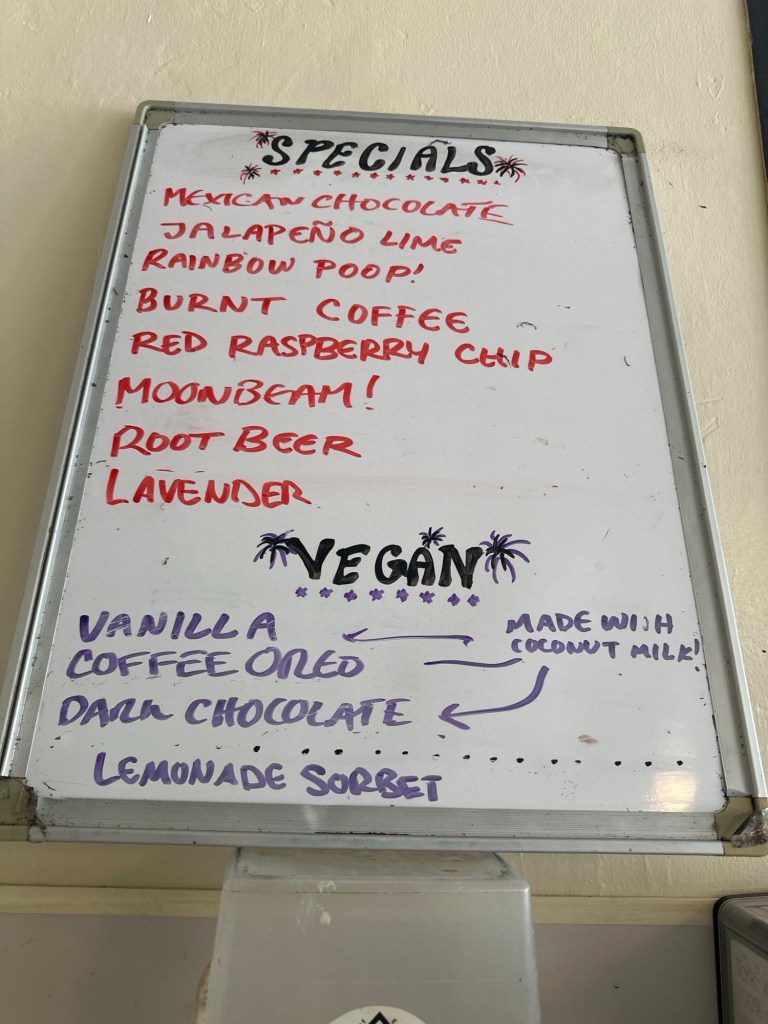 SPECIALS
MEXICAN CHOCOLATE
JALAPEÑO LIME
RAINBOW POOP!
BURNT COFFEE
RED RASPBERRY CHIP
MOONBEAM!
ROOT BEER
LAVENDER
VEGAN
VANILLA
COFFEE OREO
DARK CHOCOLATE
MADE WITH
COCONUT MILK!
LEMONADE SORBET